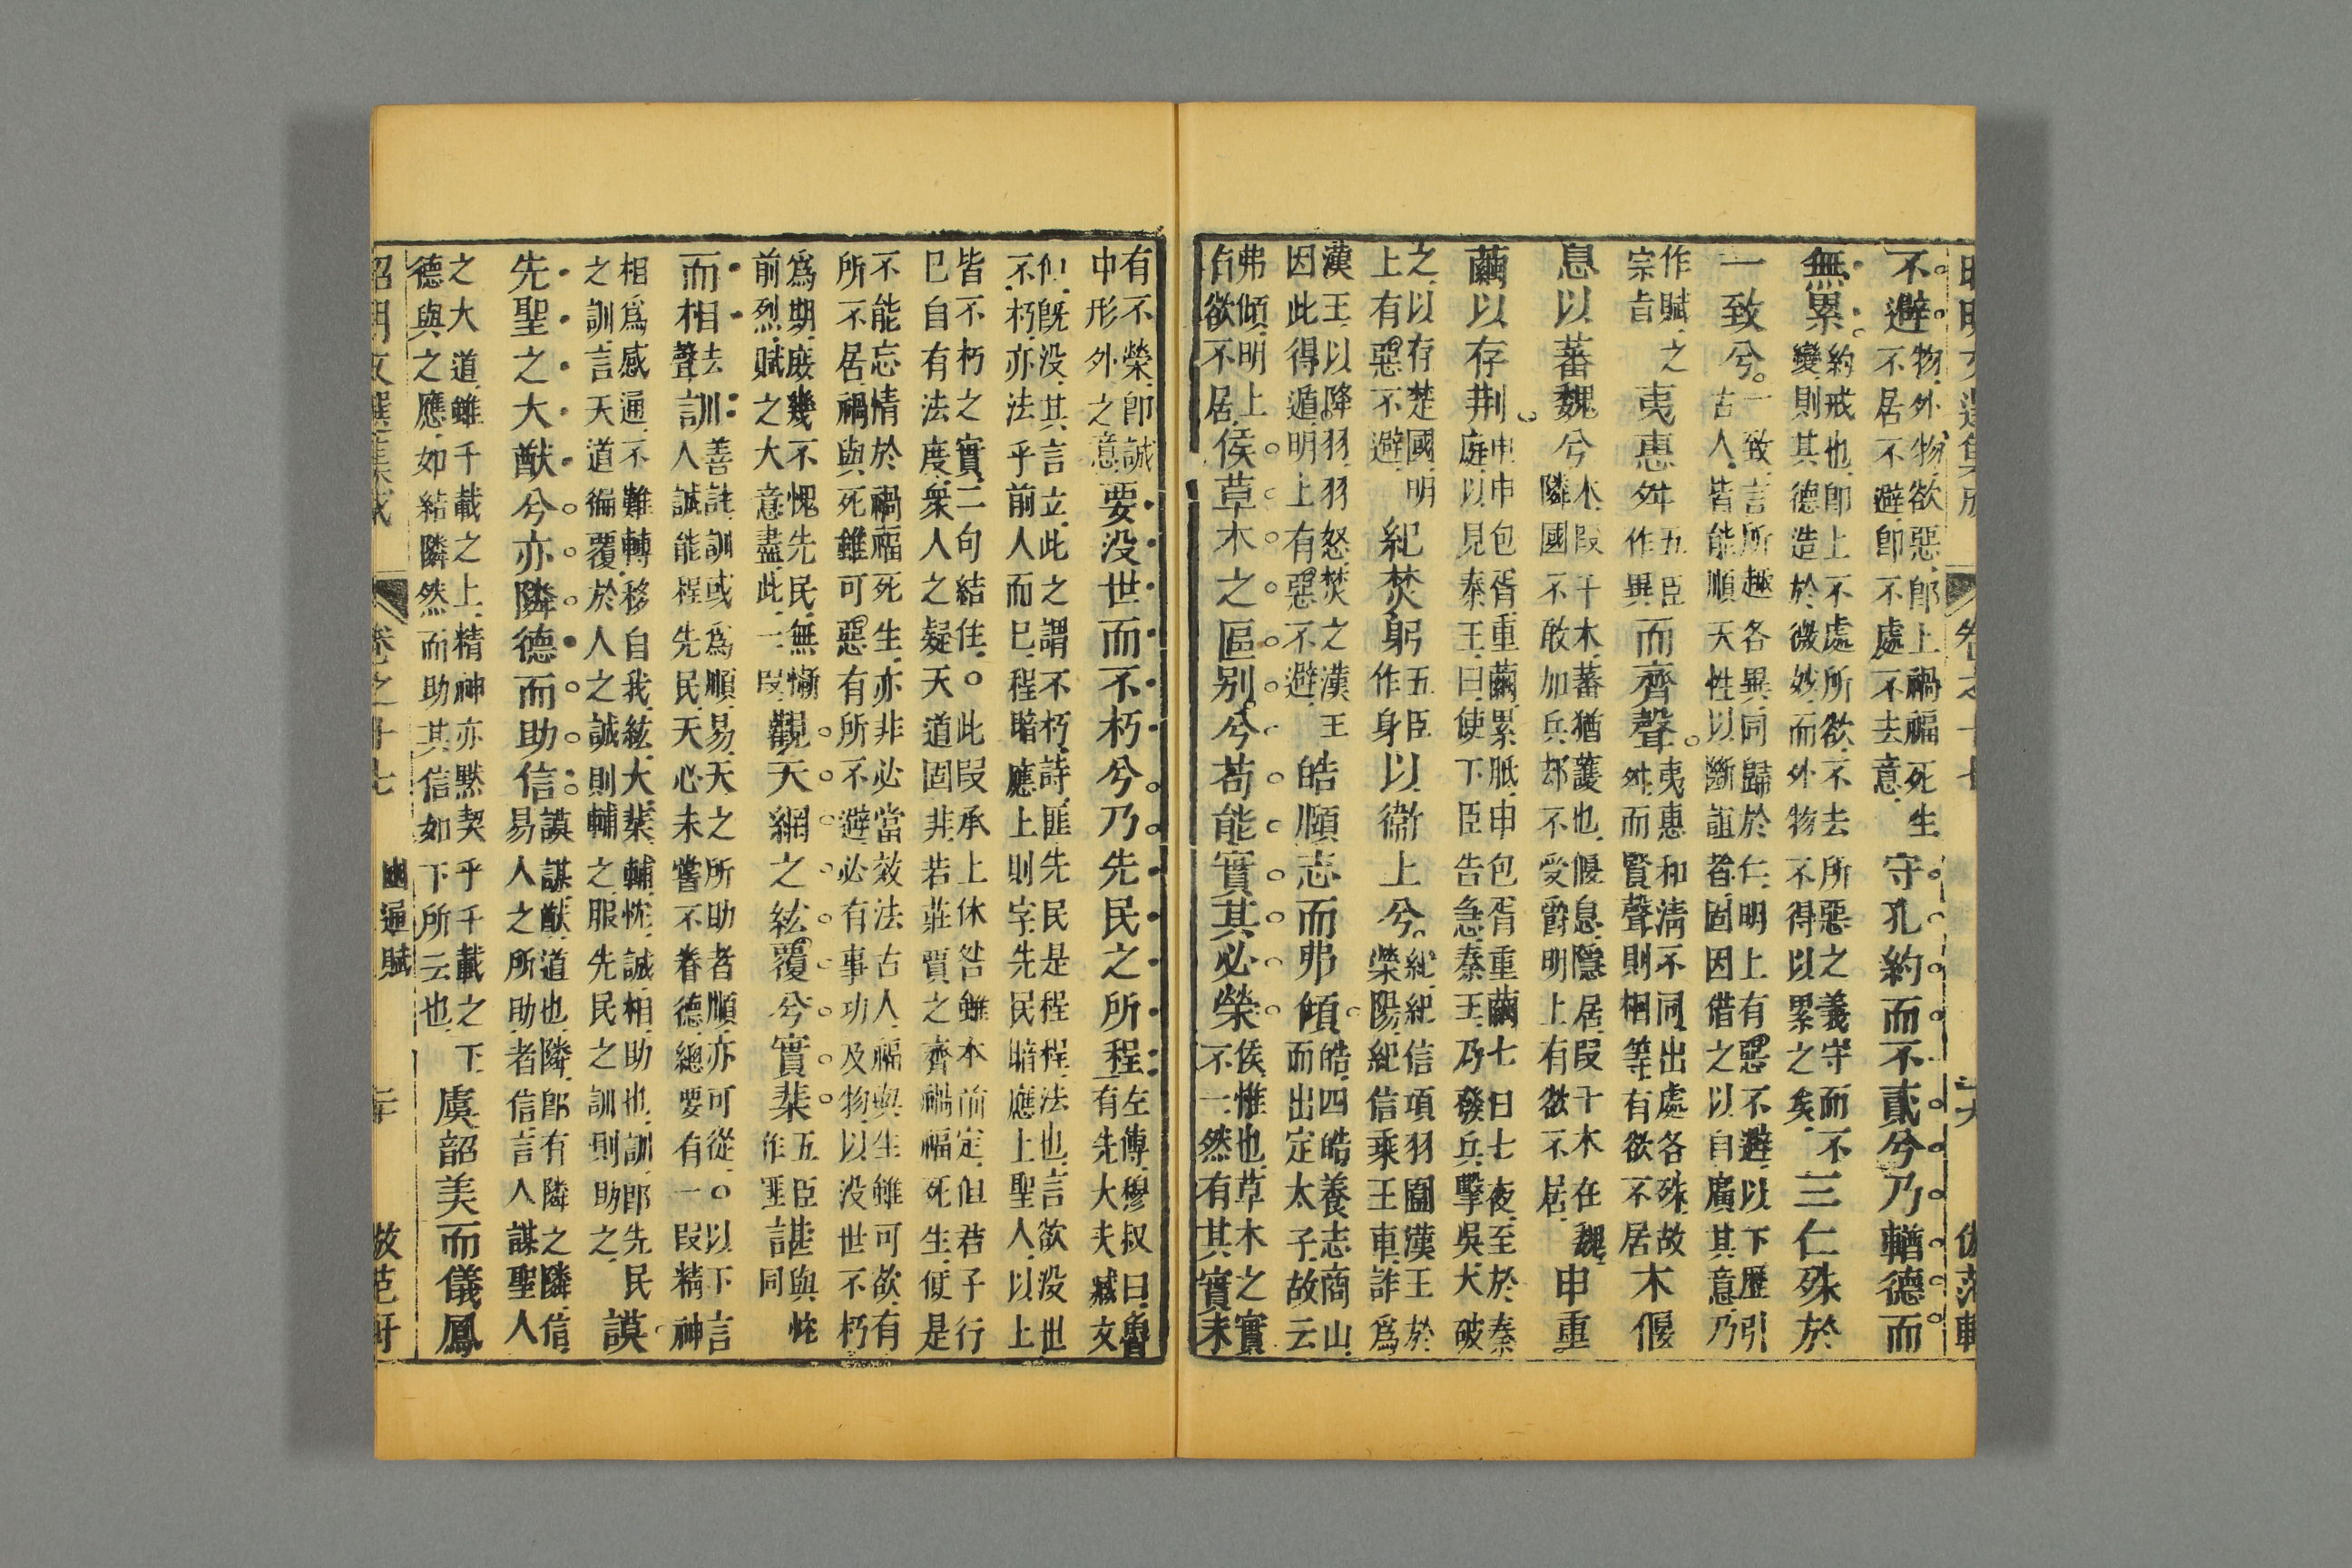 昭明文選集成 卷之十七 二六 倣范軒
不避物外物欲惡即上禍福死生不居不避即不處不去意守孔約而不貳兮乃輶德而
無累約戒也即上不處所欲不去所惡之義守而不變則其德造於微妙而外物不得以累之矣三仁殊於
一致兮一致言所趣各異同歸於仁明上有惡不避以下歷引古人皆能順天性以斷誼者固因借之以自廣其意乃
作賦之宗旨夷惠舛五臣作異而齊聲夷惠和淸不同出處各殊故舛而賢聲則相等有欲不居木偃
息以蕃魏兮木段干木蕃猶護也偃息隱居段干木在魏隣國不敢加兵却不受爵明上有欲不居申重
繭以存荆申申包胥重繭累胝申包胥重繭七日七夜至於秦庭以見秦王曰使下臣告急秦王乃發兵擊吳大破
之以存楚國明上有惡不避紀焚躬五臣作身以衞上兮紀紀信項羽圍漢王於滎陽紀信乘王車詐爲
漢王以降羽羽怒焚之漢王因此得遁明上有惡不避皓頤志而弗傾皓四皓養志商山而出定太子故云
弗傾明上有欲不居侯草木之區别兮苟能實其必榮侯惟也草木之實不一然有其實未
有不榮卽誠中形外之意要没世而不朽兮乃先民之所程左傳穆叔曰魯有先大夫臧文
仲旣没其言立此之謂不朽詩匪先民是程程法也言欲没世不朽亦法乎前人而已程暗應上則字先民暗應上聖人以上
皆不朽之實二句結住○此段承上休咎雖本前定但君子行已自有法度衆人之疑天道固非若莊賈之齊禍福死生便是
不能忘情於禍福死生亦非必當效法古人福與生雖可欲有所不居禍與死雖可惡有所不避必有事功及物以没世不朽
爲期庶幾不愧先民無慚前烈賦之大意盡此一段觀天網之紘覆兮實棐五臣作匪諶與忱同
而相去聲訓善註訓或爲順易天之所助者順亦可從○以下言人誠能程先民天必未嘗不眷德總要有一段精神
相爲感通不難轉移自我紘大棐輔忱誠相助也訓即先民之訓言天道徧覆於人之誠則輔之服先民之訓則助之謨
先聖之大猷兮亦隣德而助信謨謀猷道也隣即有隣之隣信易人之所助者信言人謀聖人
之大道雖千載之上精神亦黙契乎千載之下德與之應如結隣然而助其信如下所云也虞韶美而儀鳳
昭明文選集成 卷之十七 幽通賦 倣范軒